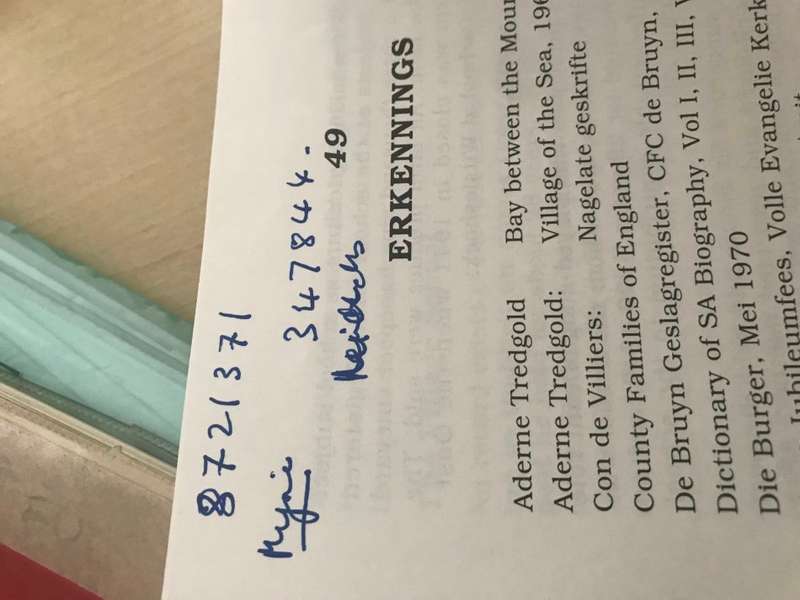 8721371
347844.
49
ERKENNINGS
Aderne Tredgold Bay between the
Aderne Tredgold: Village of the Sea,
Con de Villiers: Nagelate geskrifte
County Families of England
De Bruyn Geslagregister, CFC de Bruyn,
Dictionary of SA Biography, Vol I, II, III,
Die Burger, Mei 1970
Jubileumfees, Volle Evangelie Kerk